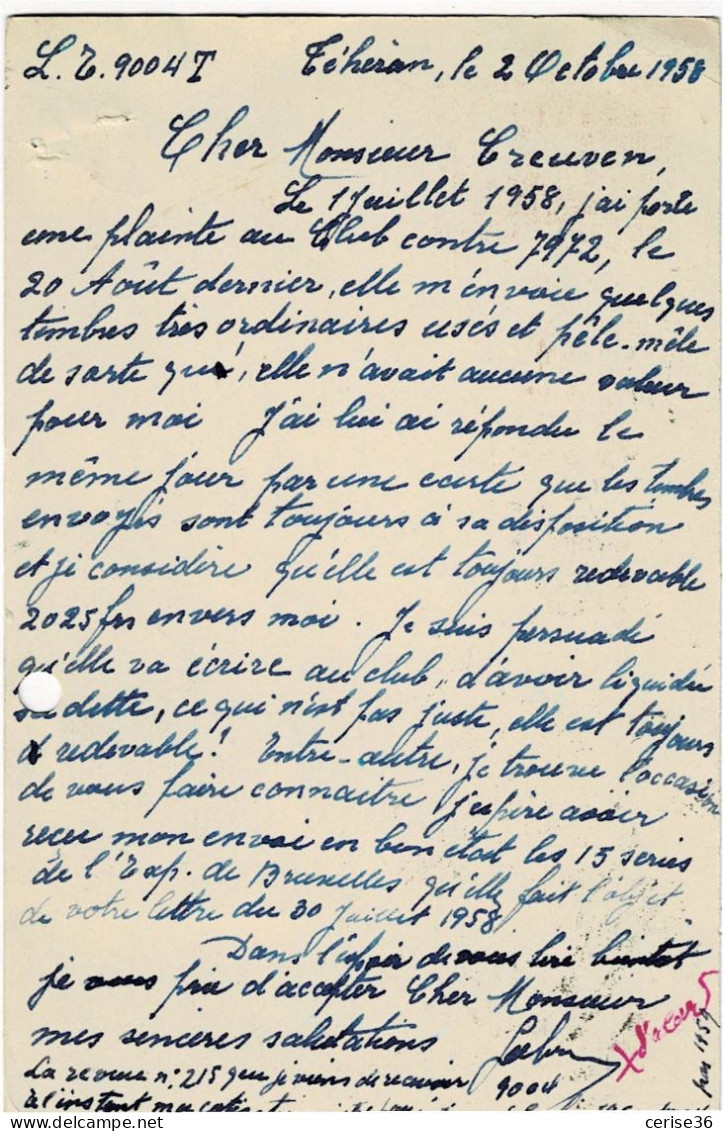 L.T. 9004 T Téhéran, le 2 Octobre 1958
Cher Monsieur Creuven,
Le 1 Juillet 1958, j'ai porté
une plainte au Club contre 7972, le
20 Août dernier, elle m'envoie quelques
timbres très ordinaires usés et pêle-mêle
de sorte que, elle n'avait aucune valeur
pour moi J'ai lui ai répondu le
même jour par une carte que les timbres
envoyés sont toujours à sa disposition
et je considère qu'elle est toujours redevable
2025 frs envers moi. Je suis persuadé
qu'elle va écrire au club, d'avoir liquidée
sa dette, ce qui n'est pas juste, elle est toujours
redevable! Entre-autre, je trouve l'occasion
de vous faire connaitre j'espère avoir
reçu mon envoi en bon état les 15 series
de l'Exp. de Bruxelles qu'elle fait l'objet
de votre lettre du 30 Juillet 1958
Dans l'espoir de vous lire bientot
je vous prie d'accepter Cher Monsieur
mes sencères salutations
9004
La revue n° 215 que je viens de recevoir
à l'instent
cerise36